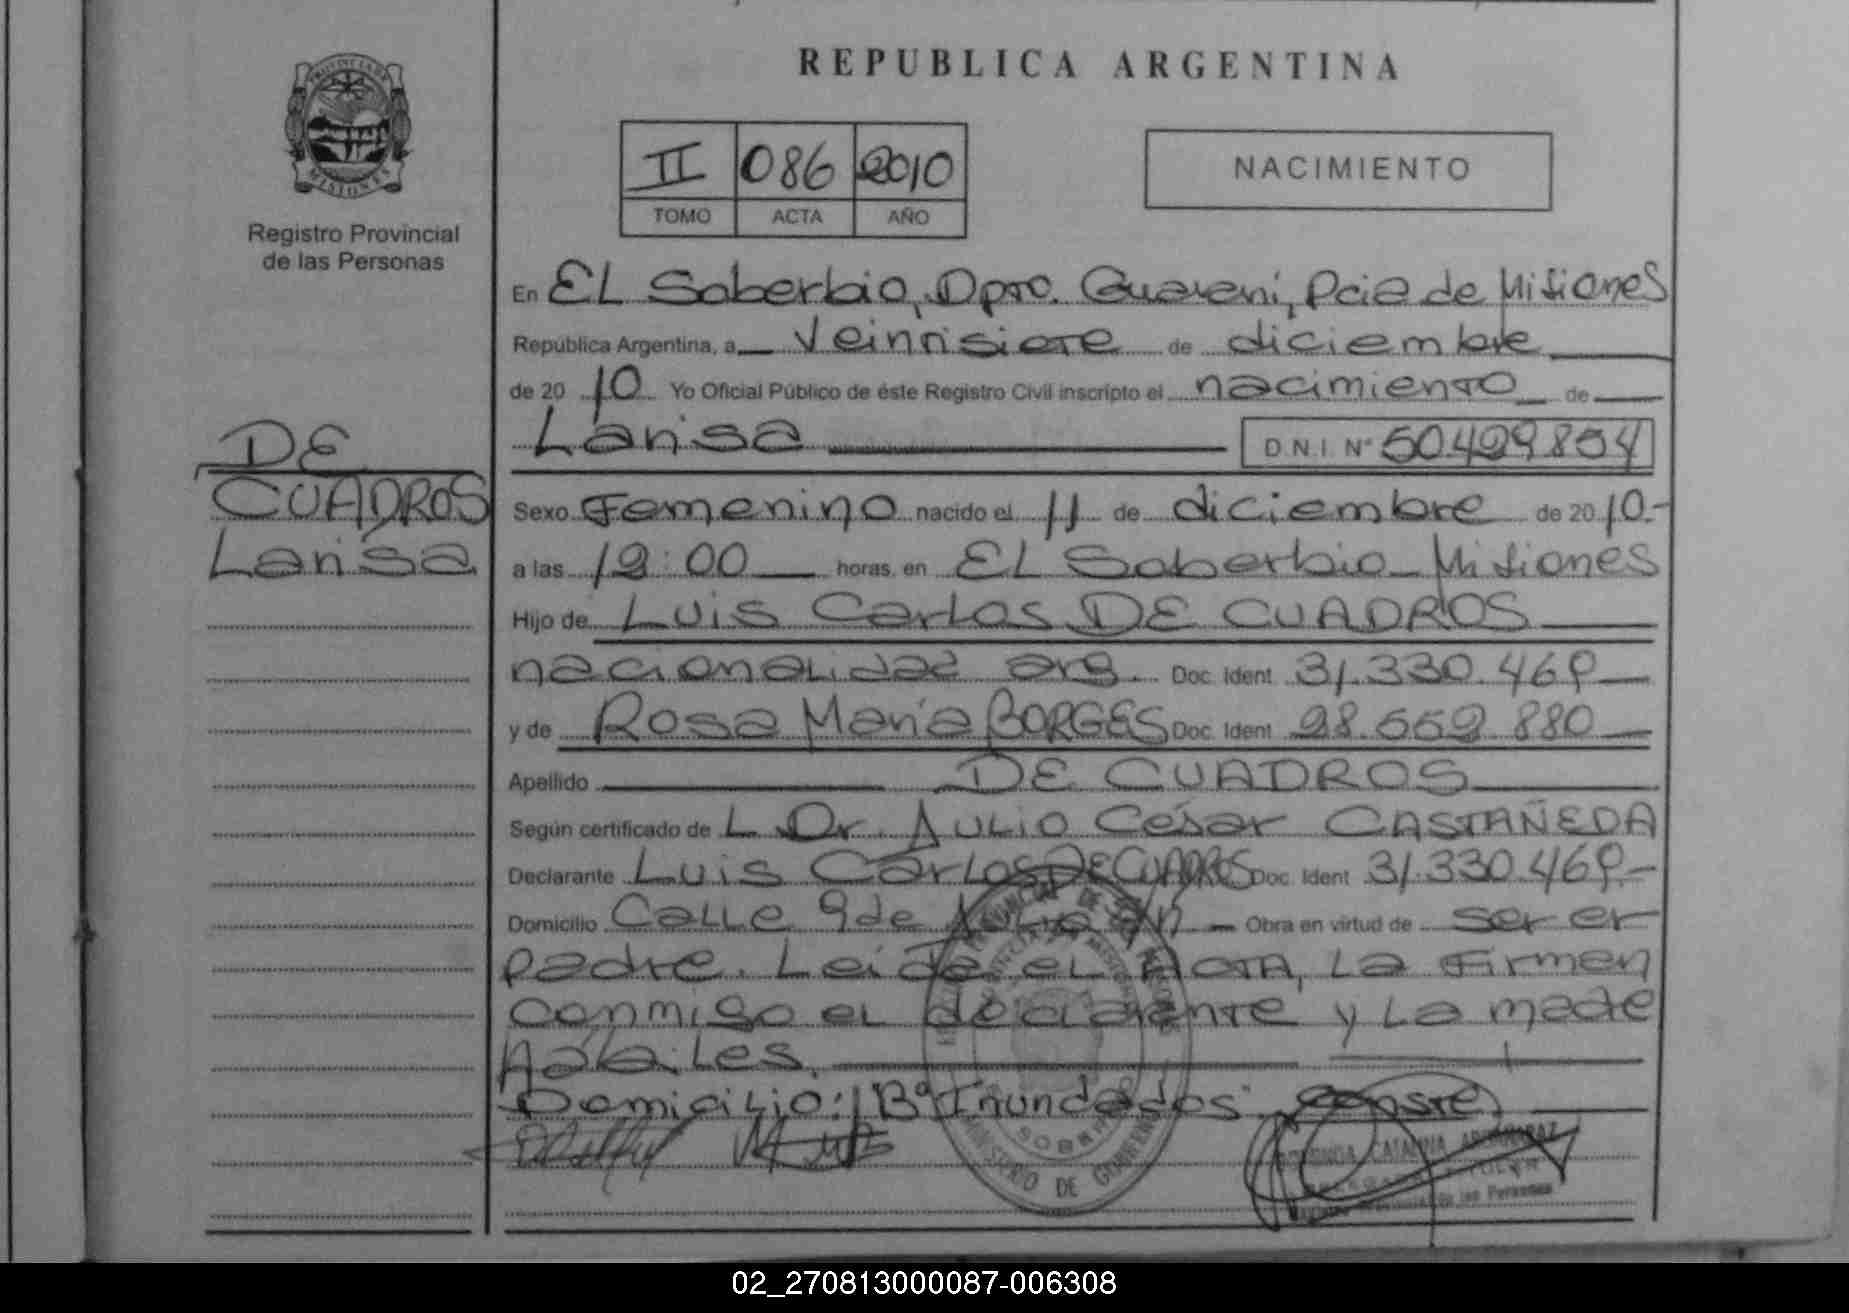 REPUBLICA ARGENTINA
PROVINCIA DE
MISIONES
Registro Provincial
de las Personas
II 086 2010
TOMO ACTA AÑO
NACIMIENTO
En EL Soberbio, Dpto. Guarani, Pcia de Misiones
República Argentina, a Veintisiete de diciembre
de 20 10 Yo Oficial Público de éste Registro Civil inscripto el nacimiento de
Larisa D.N.I. Nº 50.499.854
DE
CUADROS
Larisa
Sexo Femenino nacido el 11 de diciembre de 20 10.-
a las 19:00 horas, en EL Soberbio - Misiones
Hijo de Luis Carlos DE CUADROS
nacionalidad arg. Doc. Ident. 31.330.469
y de Rosa María BORGES Doc. Ident. 28.669.880
Apellido DE CUADROS
Según certificado de L Dr. JULIO César CASTAÑEDA
Declarante Luis Carlos DE CUADROS Doc. Ident. 31.330.469.-
Domicilio Calle 9 de Julio s/n - Obra en virtud de ser el
padre. Leída el ACTA, La Firman
conmigo el declarante y La madre
Hábiles.
Domicilio: Bº "Inundados" Conste
MINISTERIO DE GOBIERNO
CATALINA
de las Personas
02_270813000087-006308